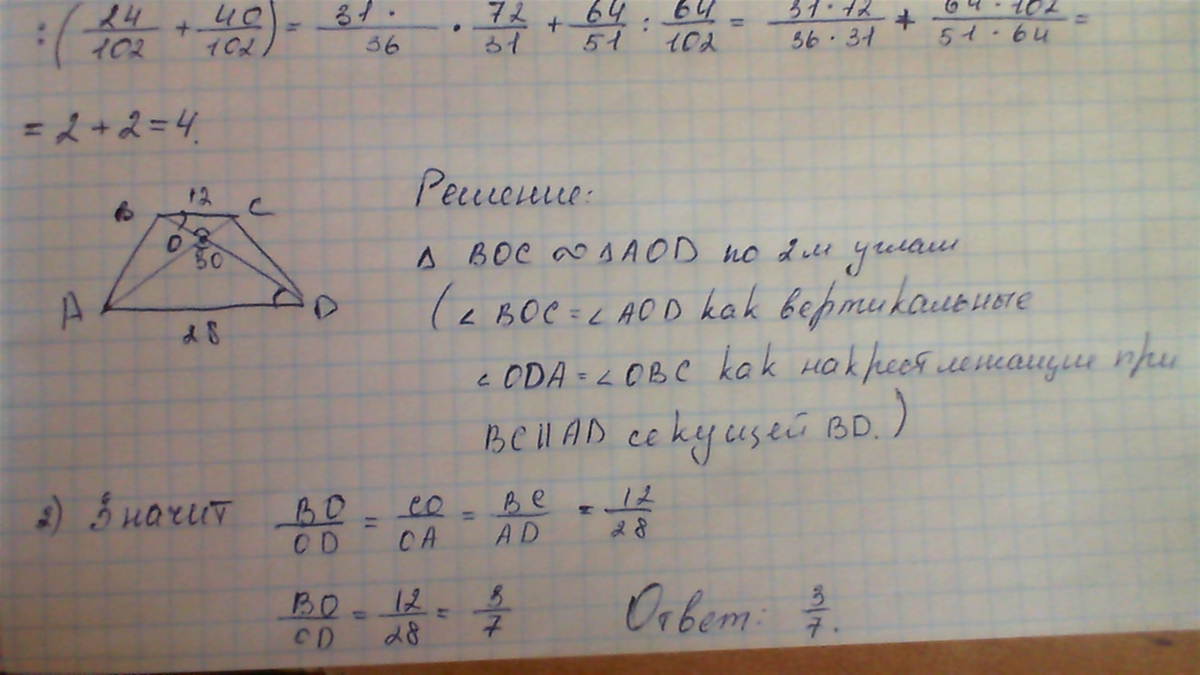 : ( 24/102 + 40/102 ) = 31 · /36 · 72/31 + 64/51 : 64/102 = 31 · 12/36 · 31 + 64 · 102/51 · 64 =
= 2 + 2 = 4.
12
B C
O
30
A D
28
Решение:
Δ BOC ∾ Δ AOD по 2м углам
( ∠ BOC = ∠ AOD как вертикальные
∠ ODA = ∠ OBC как накрест лежащие при
BC || AD секущей BD. )
2) Значит BO/OD = CO/OA = BC/AD = 12/28
BO/OD = 12/28 = 3/7 Ответ: 3/7.